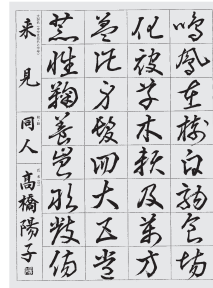 鳴鳳在樹白駒食場
化被草木頼及萬方
蓋此身髪四大五常
恭惟鞠養豈敢毀傷
来見 同人 高橋陽子